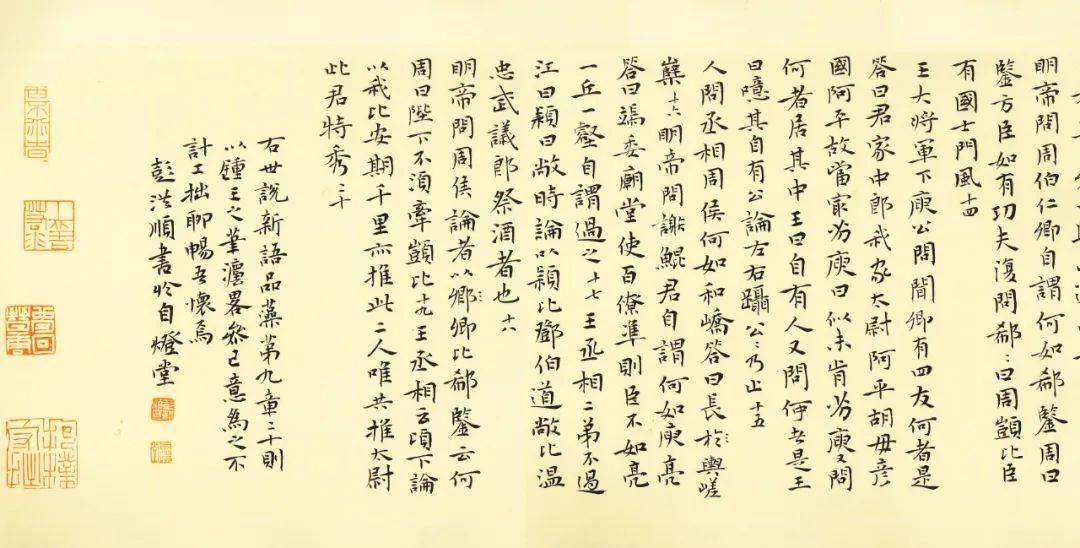 明帝問周伯仁卿自謂何如郗鑒周曰
鑒方臣如有功夫復問郗〻曰周顗比臣
有國士門風十四
王大將軍下庾公問聞卿有四友何者是
答曰君家中郎我家太尉阿平胡毋彥
國阿平故當最劣庾曰似未肯劣庾又問
何者居其中王曰自有人又問何者是王
曰噫其自有公論左右躡公〻乃止十五
人問丞相周侯何如和嶠答曰長於輿嵯
櫱十六明帝問謝鯤君自謂何如庾亮
答曰端委廟堂使百僚準則臣不如亮
一丘一壑自謂過之十七王丞相二弟不過
江曰潁曰敞時論以潁比鄧伯道敞比溫
忠武議郎祭酒者也十八
明帝問周侯論者以卿比郗鑒云何
周曰陛下不須牽顗比十九王丞相云頃下論
以我比安期千里亦推此二人唯共推太尉
此君特秀二十
右世說新語品藻第九章二十則
以鍾王之筆灋畧參己意為之不
計工拙聊暢吾懷焉
彭洪順書於自燈堂